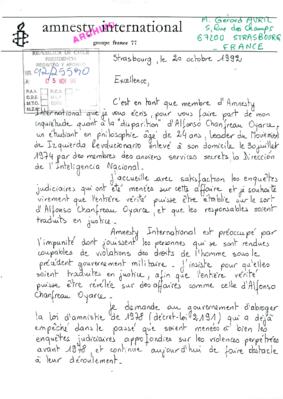 amnesty international
groupe france 77
M. Gérard AVRIL
5, Rue des Champs
67200 STRASBOURG
- FRANCE -
ARCHIVO
REPUBLICA DE CHILE
PRESIDENCIA
REGISTRO Y ARCHIVO
NR. 92/25590
A: 05 NOV 92
Strasbourg, le 20 octobre 1992
Excellence,
C'est en tant que membre d'Amnesty
International que je vous écris, pour vous faire part de mon
inquiétude quant à la "disparition" d'Alfonso Chanfreau Oyarce,
un étudiant en philosophie âgé de 24 ans, leader du Movimiento
de Izquierda Revolucionario enlevé à son domicile le 30 juillet
1974 par des membres des anciens services secrets la Dirección
de l'Inteligencia Nacional.
J'accueille avec satisfaction les enquêtes
judiciaires qui ont été menées sur cette affaire et je souhaite
vivement que l'entière vérité puisse être établie sur le sort
d'Alfonso Chanfreau Oyarce et que les responsables soient
traduits en justice.
Amnesty International est préoccupé par
l'impunité dont jouissent les personnes qui se sont rendues
coupables de violations des droits de l'homme sous le
précédent gouvernement militaire. J'insiste pour qu'elles
soient traduites en justice, afin que l'entière vérité
puisse être révélée sur des affaires comme celle d'Alfonso
Chanfreau Oyarce.
Je demande au gouvernement d'abroger
la loi d'amnistie de 1978 (décret-loi 2.191) qui a déjà
empêché dans le passé que soient menées à bien les
enquêtes judiciaires approfondies sur les violences perpétrées
avant 1978 et continue aujourd'hui de faire obstacle
à leur déroulement.